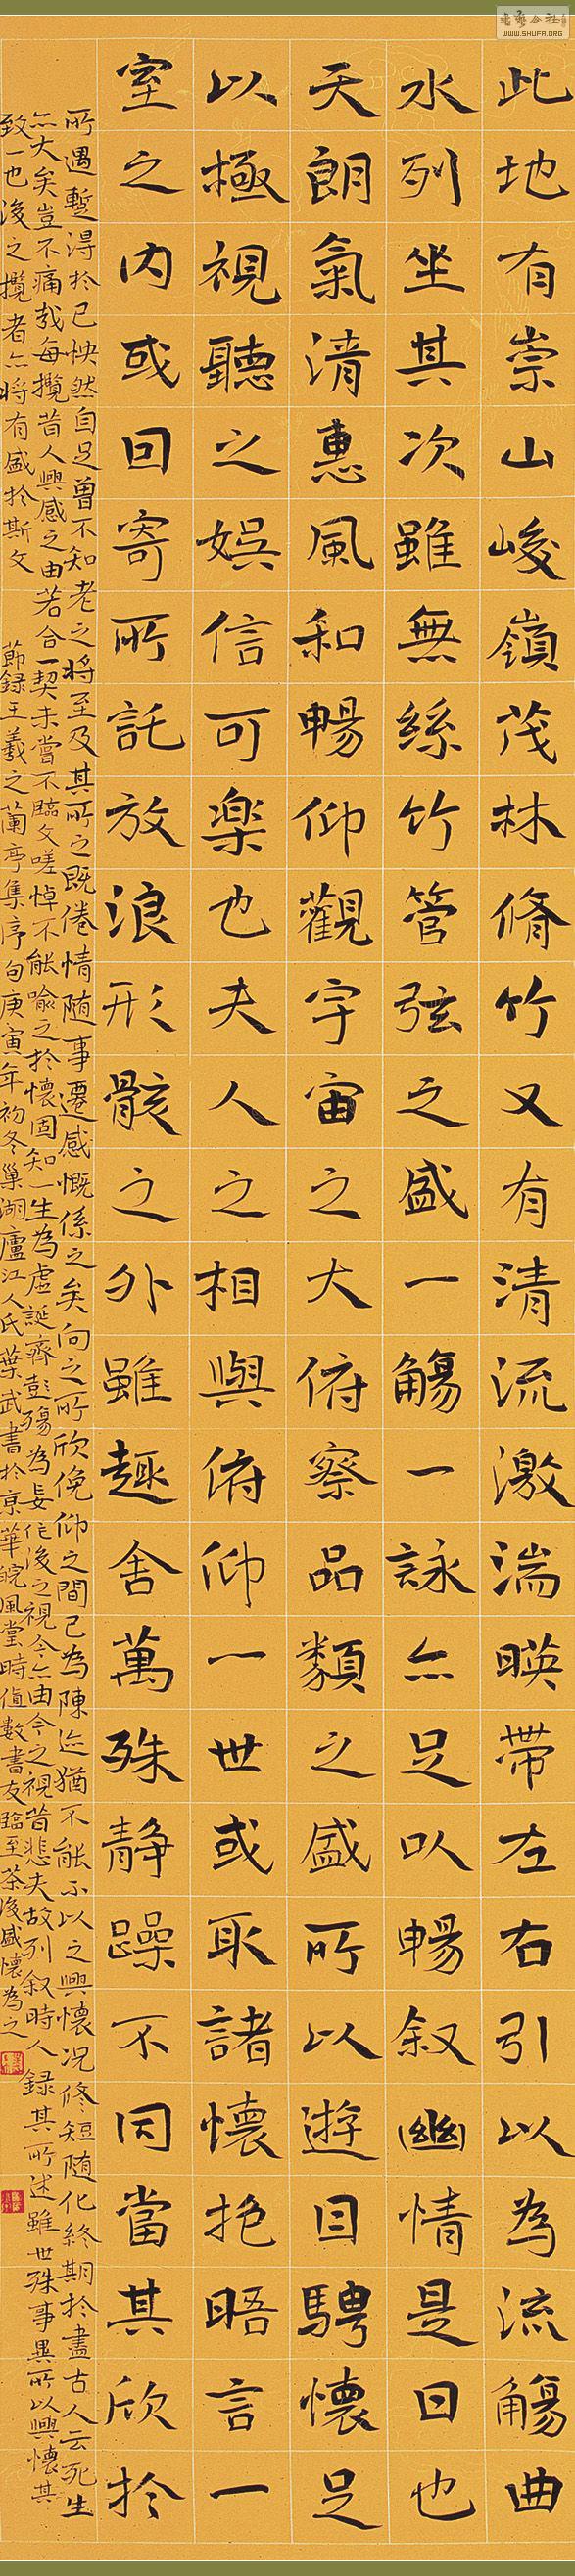 此地有崇山峻嶺茂林脩竹又有清流激湍暎帶左右引以為流觴曲
水列坐其次雖無絲竹管弦之盛一觴一詠亦足以暢叙幽情是日也
天朗氣清惠風和暢仰觀宇宙之大俯察品類之盛所以遊目騁懷足
以極視聽之娛信可楽也夫人之相與俯仰一世或取諸懷抱晤言一
室之内或因寄所託放浪形骸之外雖趣舍萬殊静躁不同當其欣於
所遇暫得於己怏然自足曾不知老之將至及其所之既倦情随事遷感慨係之矣向之所欣俛仰之間已為陳迹猶不能不以之興懷况修短随化終期於盡古人云死生
亦大矣豈不痛哉每攬昔人興感之由若合一契未嘗不臨文嗟悼不能喻之於懷固知一生為虛誕齊彭殤為妄作後之視今亦由今之視昔悲夫故列叙時人録其所述雖世殊事異所以興懷其
致一也後之攬者亦將有感於斯文 節録王羲之蘭亭集序句庚寅年初冬巢湖廬江人氏葉武書於京華皖風堂時值數書友臨至茶後感懷為之
WWW.SHUFA.ORG